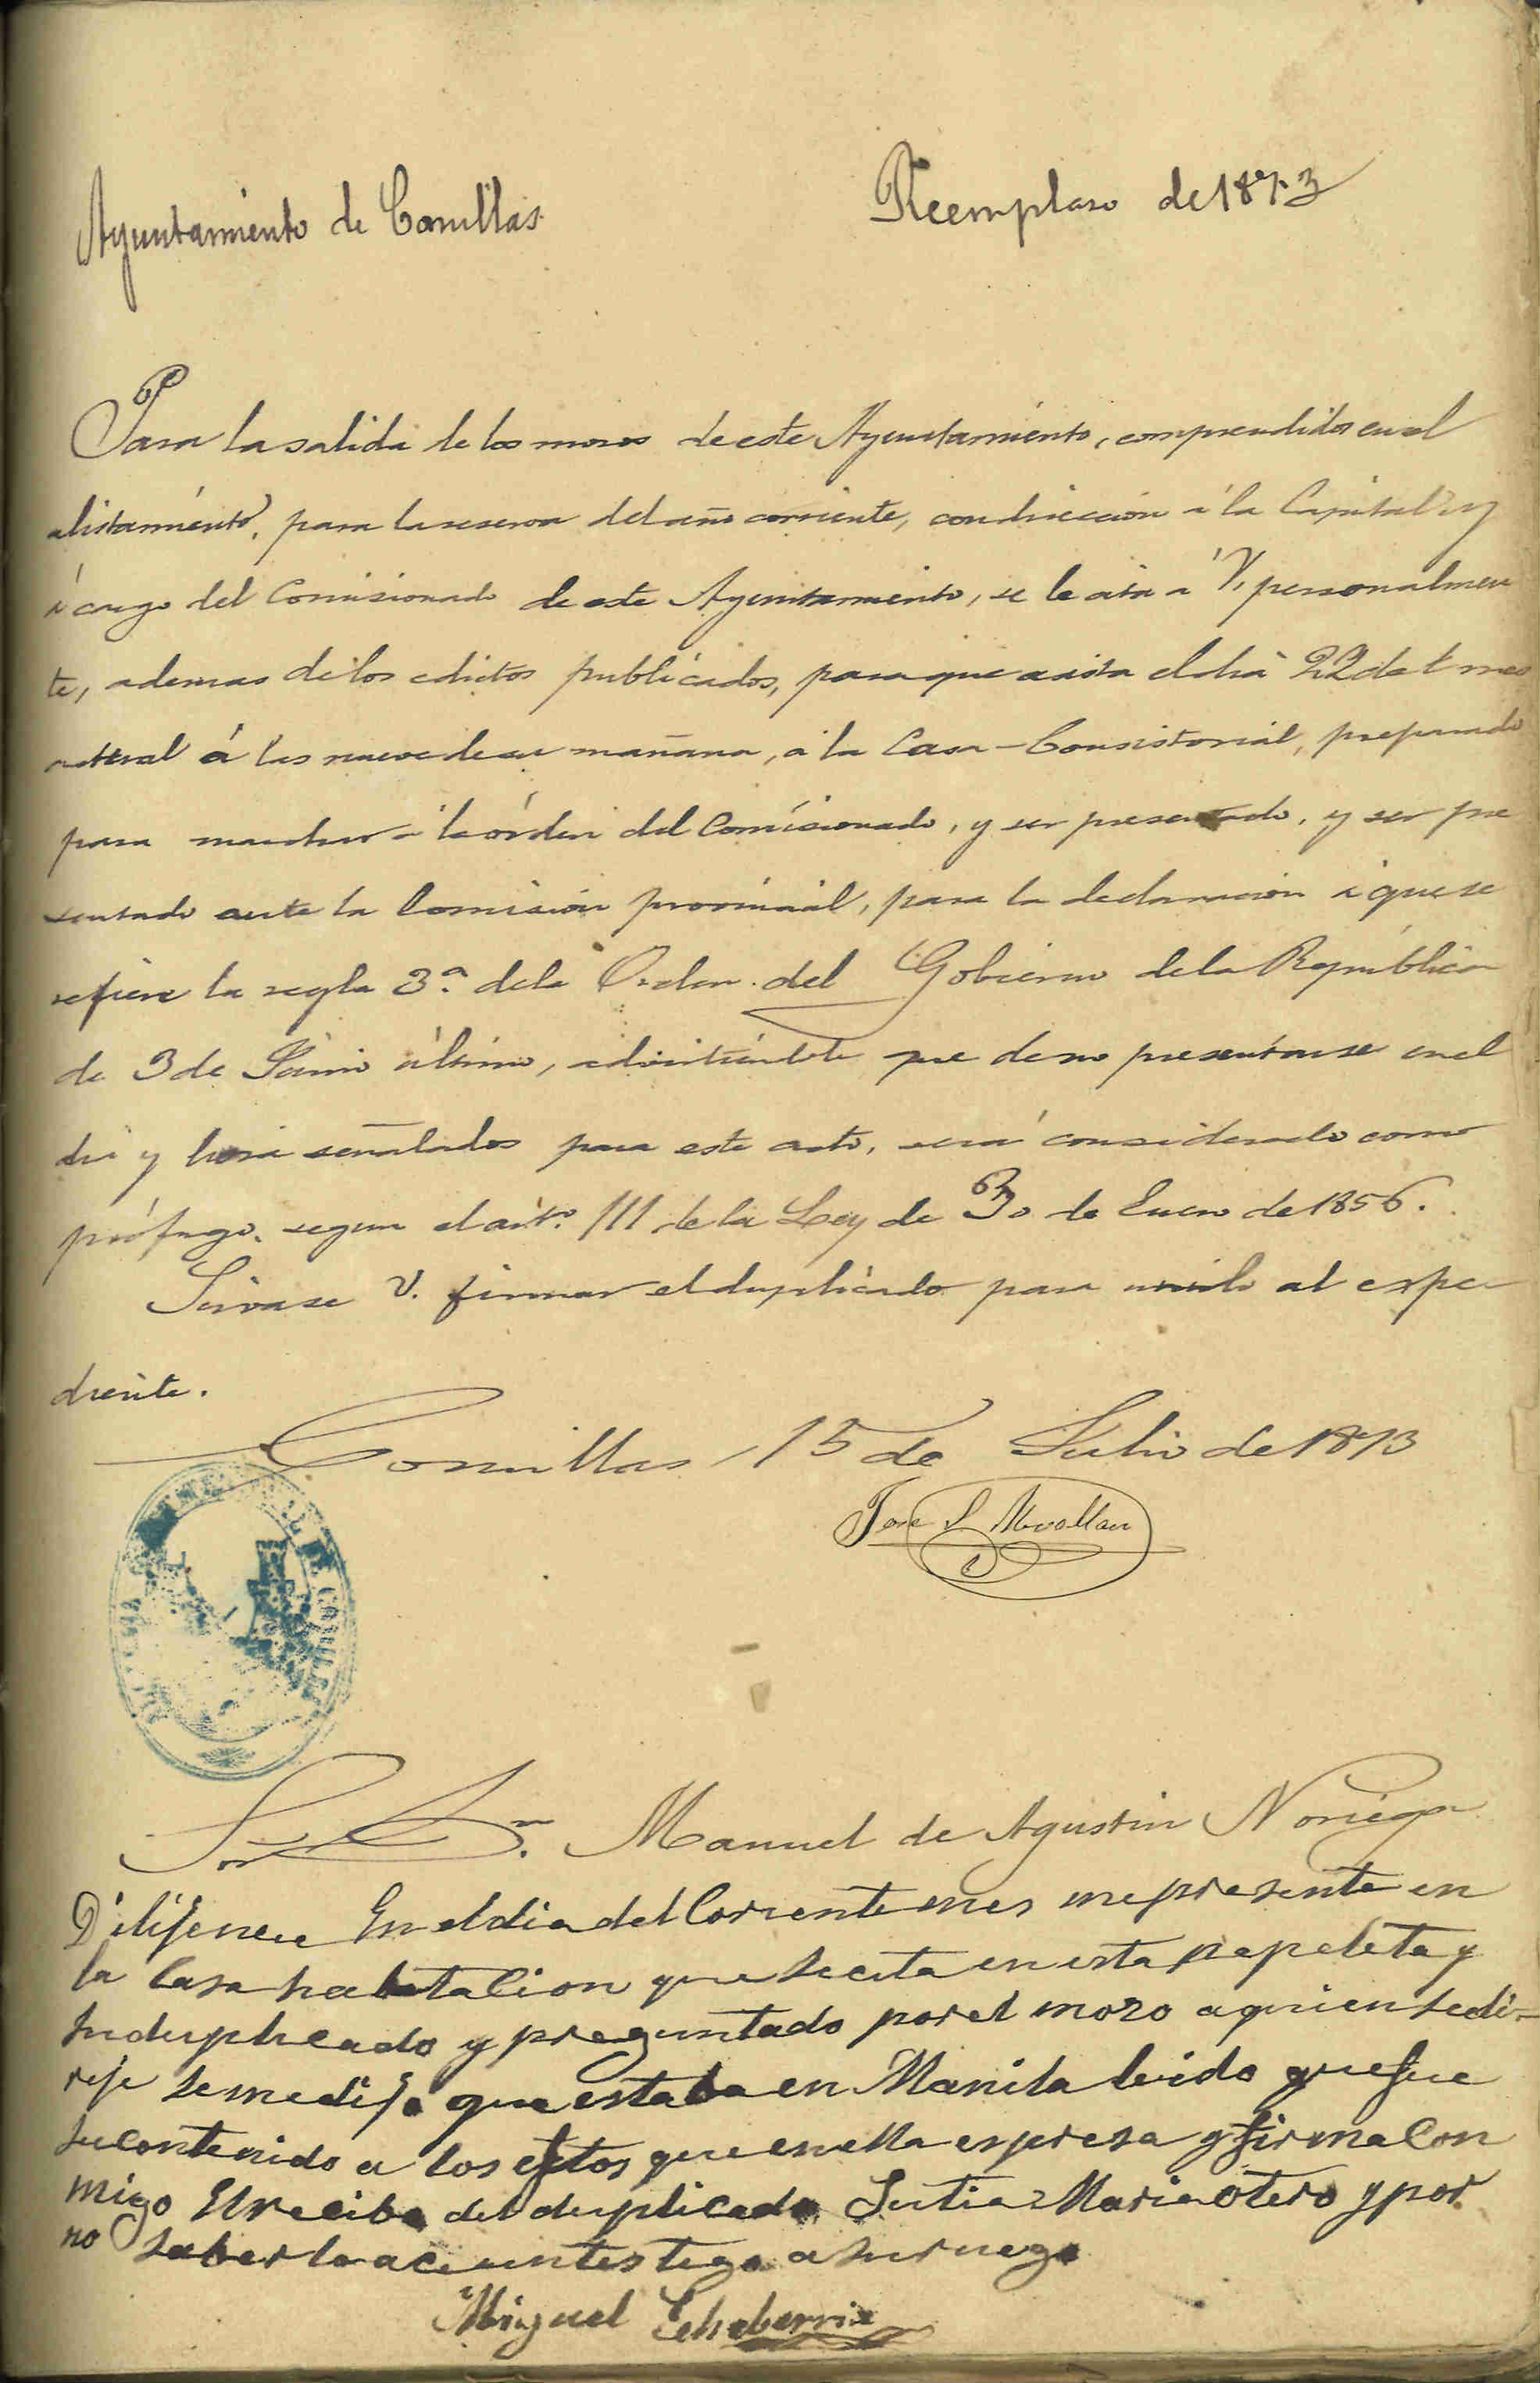 Ayuntamiento de Comillas
Reemplaso de 1873
Para la salida de los mosos de este Ayuntamiento, comprendidos en el
alistamiento, para la reserva del año corriente, con dirección á la Capital y
á cargo del Comisionado de este Ayuntamiento, se le cita á V. personalmen
te, ademas de los edictos publicados, para que asista el dia 22 del mes
actual á las nueve de su mañana, á la Casa-Consistorial, preparado
para marchar á la órden del Comisionado, y ser presentado, y ser pre
sentado ante la Comision provincial, para la declaracion á que se
refiere la regla 3.ª de la Orden del Gobierno de la República
de 3 de Junio último, advirtiéndole que de no presentarse en el
dia y hora señalados para este acto, será considerado como
prófugo, segun el art.º 111 de la Ley de 30 de Enero de 1856.
Sirvase V. firmar el duplicado para unirlo al expe
diente.
Comillas 15 de Julio de 1873
Jose S
Sor Dn. Manuel de Agustin Noriega
Dilijencia En el dia del Corriente mes me presente en
la Casa habitacion que se cita en esta papeleta y
su duplicado y preguntado por el moso a quien se di-
rije se me dijo que estaba en Manila leido que fue
su contenido a los eftos que en ella espresa y firma Con
migo El recibo del duplicado Su tia Maria Otero y por
no saber lo ace un testigo a su ruego
Miguel Echeberria